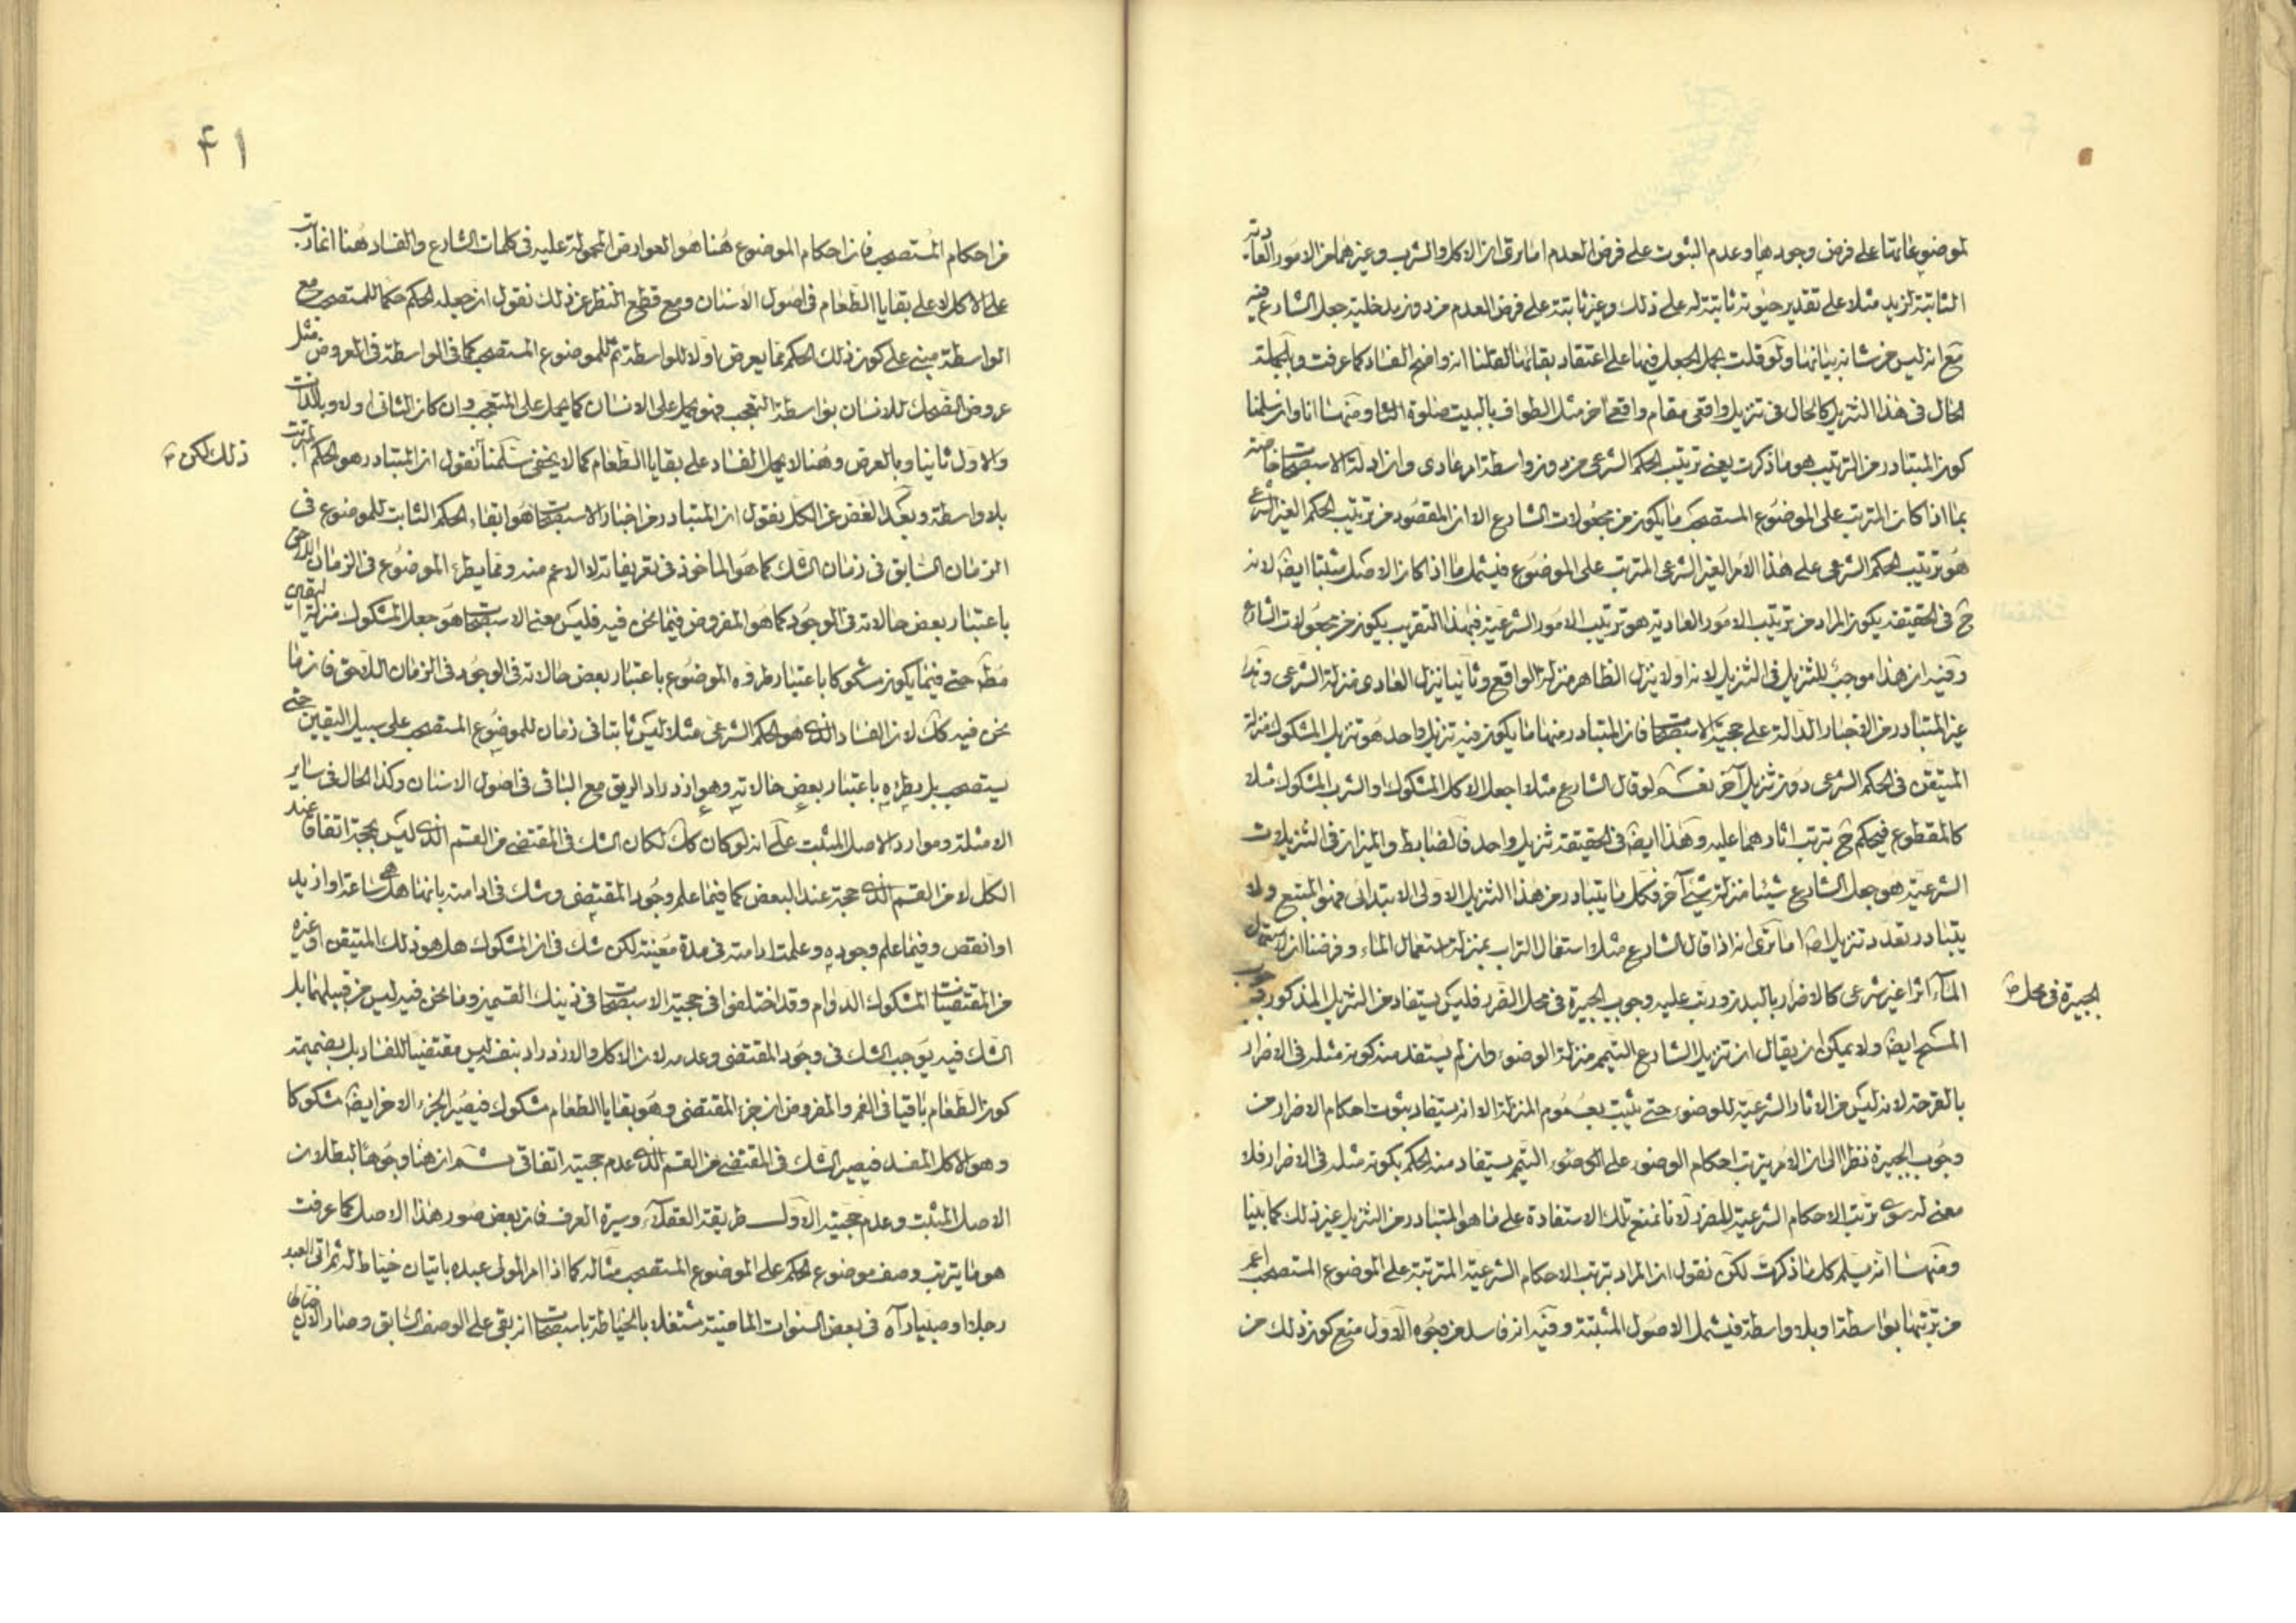 لموضوعاتها على فرض وجودها وعدم الثبوت على فرض العدم اما ترى ان الاكل والشرب وغيرهما من الامور العادية
الثابتة لزيد مثلا على تقدير حيوته ثابتة له على ذلك وغير ثابتة على فرض العدم من دون مدخلية جعل الشارع فيه
مع انه ليس من شانه بيانها ولو قلت بجعل الجعل فيها على اعتقاد بقائها لقلنا انه واضح الفساد كما عرفت وبالجملة
الحال في هذا التنزيل كالحال في تنزيل واقعي مقام واقعي اخر مثل الطواف بالبيت صلوة الثا ومنها انا وان سلمنا
كون المتبادر من الترتيب هو ما ذكرت يعني ترتيب الحكم الشرعي من دون واسطة امر عادى وان ادلة الاستصحاب خاصة
بما اذا كان المترتب على الموضوع المستصحب ما يكون من مجعولات الشارع الا ان المقصود من ترتيب الحكم الغير الشرعي
هو ترتيب الحكم الشرعي على هذا الامر الغير الشرعي المترتب على الموضوع فيشمل ما اذا كان الاصل مثبتا ايضا لانه
ح في الحقيقة يكون المراد من ترتيب الامور العادية هو ترتيب الامور الشرعية فبهذا التقريب يكون من مجعولات الشارع
وفيه ان هذا موجب للتنزيل في التنزيل لانه اولا ينزل الظاهر منزلة الواقع وثانيا ينزل العادى منزلة الشرعي وذلك
غير المتبادر من الاخبار الدالة على حجية الاستصحاب فان المتبادر منها ما يكون فيه تنزيل واحد هو تنزيل المشكوك منزلة
المتيقن في الحكم الشرعي دون تنزيل آخر نعم لو قال الشارع مثلا اجعل الاكل المشكوك او الشرب المشكوك مثلا
كالمقطوع فيحكم ح بترتب اثارهما عليه وهذا ايضا في الحقيقة تنزيل واحد فالضابط والميزان في التنزيلات
الشرعية هو جعل الشارع شيئا منزلة شيء آخر فكل ما يتبادر من هذا التنزيل الاولى الابتدائى فهو المتبع ولا
يتبادر تعدد تنزيل اصلا اما ترى انه اذا قال الشارع مثلا استعمال التراب بمنزلة استعمال الماء وفرضنا ان لاستعمال
الماء اثرا غير شرعى كالاضرار بالبدن ورتب عليه وجوب الجبيرة في محل الضرر فليس يستفاد من التنزيل المذكور وجوب
الجبيرة في محل
المسح ايضا ولا يمكن ان يقال ان تنزيل الشارع التيمم منزلة الوضوء وان لم يستفد منه كونه مثله في الاضرار
بالقرحة لانه ليس من الاثار الشرعية للوضوء حتى يثبت بعموم المنزلة الا انه يستفاد ثبوت احكام الاضرار من
وجوب الجبيرة نظرا الى ان الامر بترتب احكام الوضوء على الوضوء التيمم يستفاد منه الحكم بكونه مثله في الاضرار فلا
معنى له سوى ترتب الاحكام الشرعية للمضر لانا نمنع تلك الاستفادة على ما هو المتبادر من التنزيل غير ذلك كما بينا
ومنها انه يسلم كل ما ذكرت لكن نقول ان المراد بترتب الاحكام الشرعية المترتبة على الموضوع المستصحب اعم
من ترتبها بواسطة او بلا واسطة فيشمل الاصول المثبتة وفيه انه فاسد من وجوه الاول منع كون ذلك من
۴۱
من احكام المستصحب فان احكام الموضوع هنا هو العوارض المحمولة عليه في كلمات الشارع والفساد هنا انما رتب
على الاكل لا على بقايا الطعام في اصول الاسنان ومع قطع النظر عن ذلك نقول ان جعله الحكم حكما للمستصحب مع
الواسطة مبني على كون ذلك الحكم مما يعرض اولا للواسطة ثم للموضوع المستصحب كما في الواسطة في العروض مثل
عروض الضحك للانسان بواسطة التعجب فهو يحمل على الانسان كما يحمل على المتعجب وان كان الثاني اولا وبالذات
والاول ثانيا وبالعرض وهنا لا يحمل الفساد على بقايا الطعام كما لا يخفى سلمنا نقول ان المتبادر هو الحكم المترتب
ذلك لكن
بلا واسطة وبعد الغض عن الكل نقول ان المتبادر من اخبار الاستصحاب هو ابقاء الحكم الثابت للموضوع في
الزمان السابق في زمان الشك كما هو الماخوذ في تعريفاته لا الاعم منه ومما يطرء الموضوع في الزمان اللاحق
باعتبار بعض حالاته في الوجود كما هو المفروض فيما نحن فيه فليس معنى الاستصحاب هو جعل المشكوك منزلة اليقين
مط حتى فيما يكون مشكوكا باعتبار طروه الموضوع باعتبار بعض حالاته في الوجود في الزمان اللاحق فان ما
نحن فيه كك لان الفساد الذى هو الحكم الشرعى مثلا ليس ثابتا في زمان للموضوع المستصحب على سبيل اليقين حتى
يستصحب بل يطرءه باعتبار بعض حالاته وهو ازدراد الريق مع الباقى في اصول الاسنان وكذا الحال في ساير
الامثلة وموارد الاصل المثبت على انه لو كان كك لكان الشك في المقتضى من القسم الذى ليس بحجة اتفاقا عند
الكل لا من القسم الذى حجة عند البعض كما فيما علم وجود المقتضى وشك في ادامته بانها هل هى ساعة او ازيد
او انقص وفيما علم وجوده وعلمت ادامته في مدة معينة لكن شك في ان المشكوك هل هو ذلك المتيقن او غيره
من المقتضيات المشكوك الدوام وقد اختلفوا في حجية الاستصحاب في ذينك القسمين وما نحن فيه ليس من قبيلهما بل
الشك فيه يوجب الشك في وجود المقتضى وعدمه لان الاكل والازدراد بنفسه ليس مقتضيا للفساد بل بضميمة
كون الطعام باقيا في الفم والمفروض ان جزء المقتضى وهو بقايا الطعام مشكوك فيصير الجزء الاخر ايضا مشكوكا
وهو الاكل المفسد فيصير الشك في المقتضى من القسم الذى عدم حجيته اتفاقى ثم ان هنا وجوها لبطلان
الاصل المثبت وعدم حجيته الاول طريقة العقلاء وسيرة العرف فان بعض صور هذا الاصل كما عرفت
هو ما يترتب وصف موضوع الحكم على الموضوع المستصحب مثاله كما اذا امر المولى عبده باتيان خياط له ثم اتى العبد
رجلا او صبيا رآه في بعض السنوات الماضية مشتغلا بالخياطة باستصحاب انه بقى على الوصف السابق وصار الان خياطا